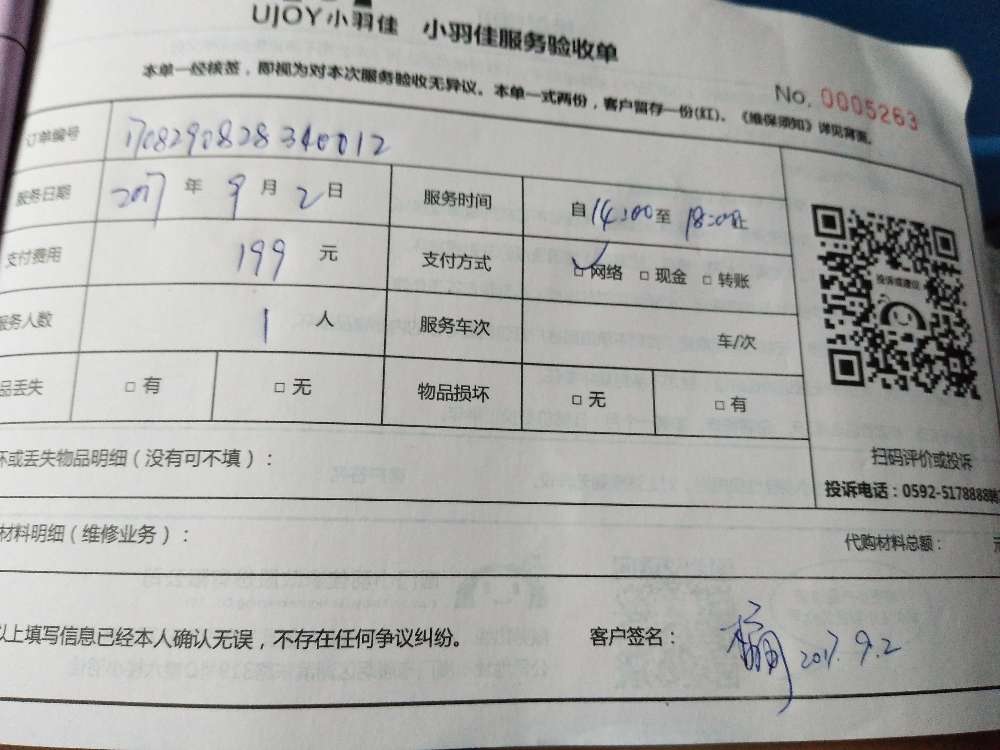 UJOY小羽佳 小羽佳服务验收单
本单一经核签，即视为对本次服务验收无异议。本单一式两份，客户留存一份(红)。《维保须知》详见背面。
No. 0005263
订单编号 1708290828340012
服务日期 2017 年 9 月 2 日 服务时间 自 14:00 至 18:00止
支付费用 199 元 支付方式 □网络 □现金 □转账
服务人数 1 人 服务车次 车/次
品丢失 □有 □无 物品损坏 □无 □有
投诉或建议
扫码评价或投诉
投诉电话：0592-5178888转
坏或丢失物品明细（没有可不填）：
材料明细（维修业务）： 代购材料总额： 元
以上填写信息已经本人确认无误，不存在任何争议纠纷。 客户签名： 2017.9.2